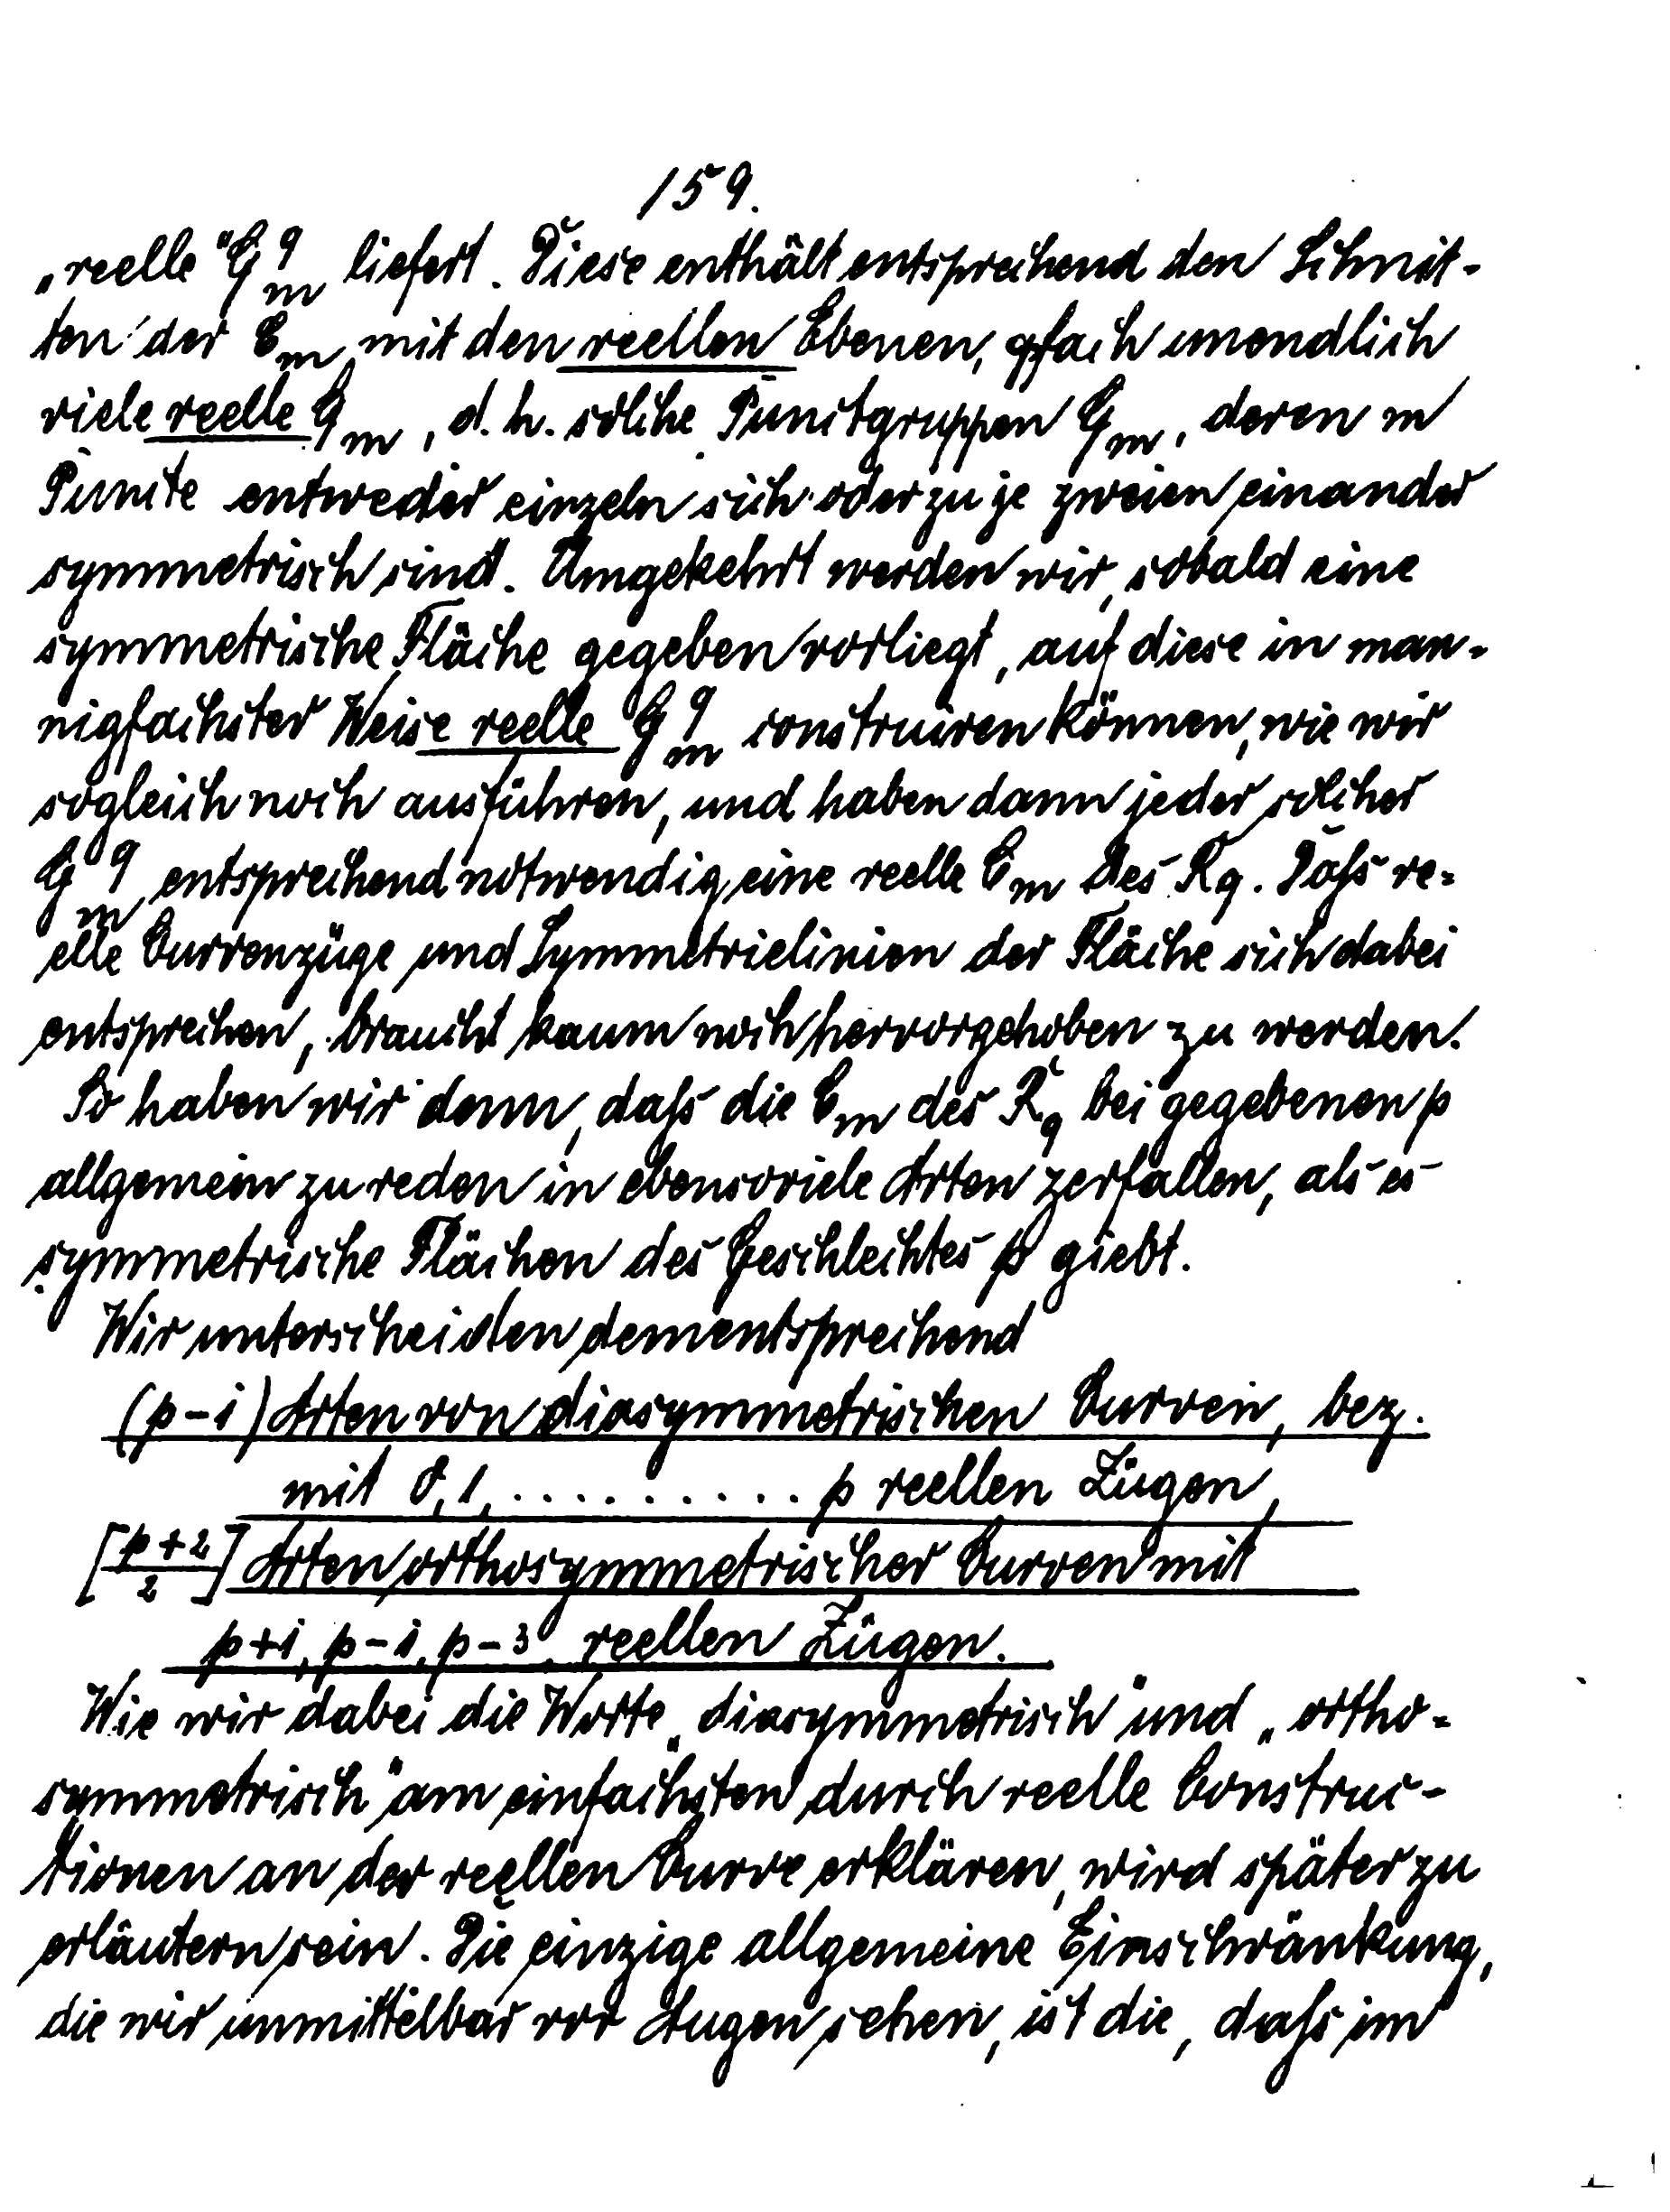 159.
„reelle“ G^q_m liefert. Diese enthält entsprechend den Schnit-
ten der C_m mit den reellen Ebenen, qfach unendlich
viele reelle G_m, d. h. solche Punctgruppen G_m, deren m
Puncte entweder einzeln sich oder zu je zweien einander
symmetrisch sind. Umgekehrt werden wir, sobald eine
symmetrische Fläche gegeben vorliegt, auf diese in man-
nigfachster Weise reelle G^q_m construiren können, wie wir
sogleich noch ausführen, und haben dann jeder solcher
G^q_m entsprechend notwendig eine reelle C_m des R_q. Daſs re-
elle Curvenzüge und Symmetrielinien der Fläche sich dabei
entsprechen, braucht kaum noch hervorgehoben zu werden.
So haben wir denn, daſs die C_m des R_q bei gegebenen p
allgemein zu reden in ebensoviele Arten zerfallen, als es
symmetrische Flächen des Geschlechtes p giebt.
Wir unterscheiden dementsprechend
(p-1) Arten von diasymmetrischen Curven, bez.
mit 0, 1, .......... p reellen Zügen,
[p+2/2] Arten orthosymmetrischer Curven mit
p+1, p-1, p-3, reellen Zügen.
Wie wir dabei die Worte „diasymmetrisch“ und „ortho-
symmetrisch“ am einfachsten durch reelle Construc-
tionen an der reellen Curve erklären, wird später zu
erläutern sein. Die einzige allgemeine Einschränkung,
die wir unmittelbar vor Augen sehen, ist die, daſs im